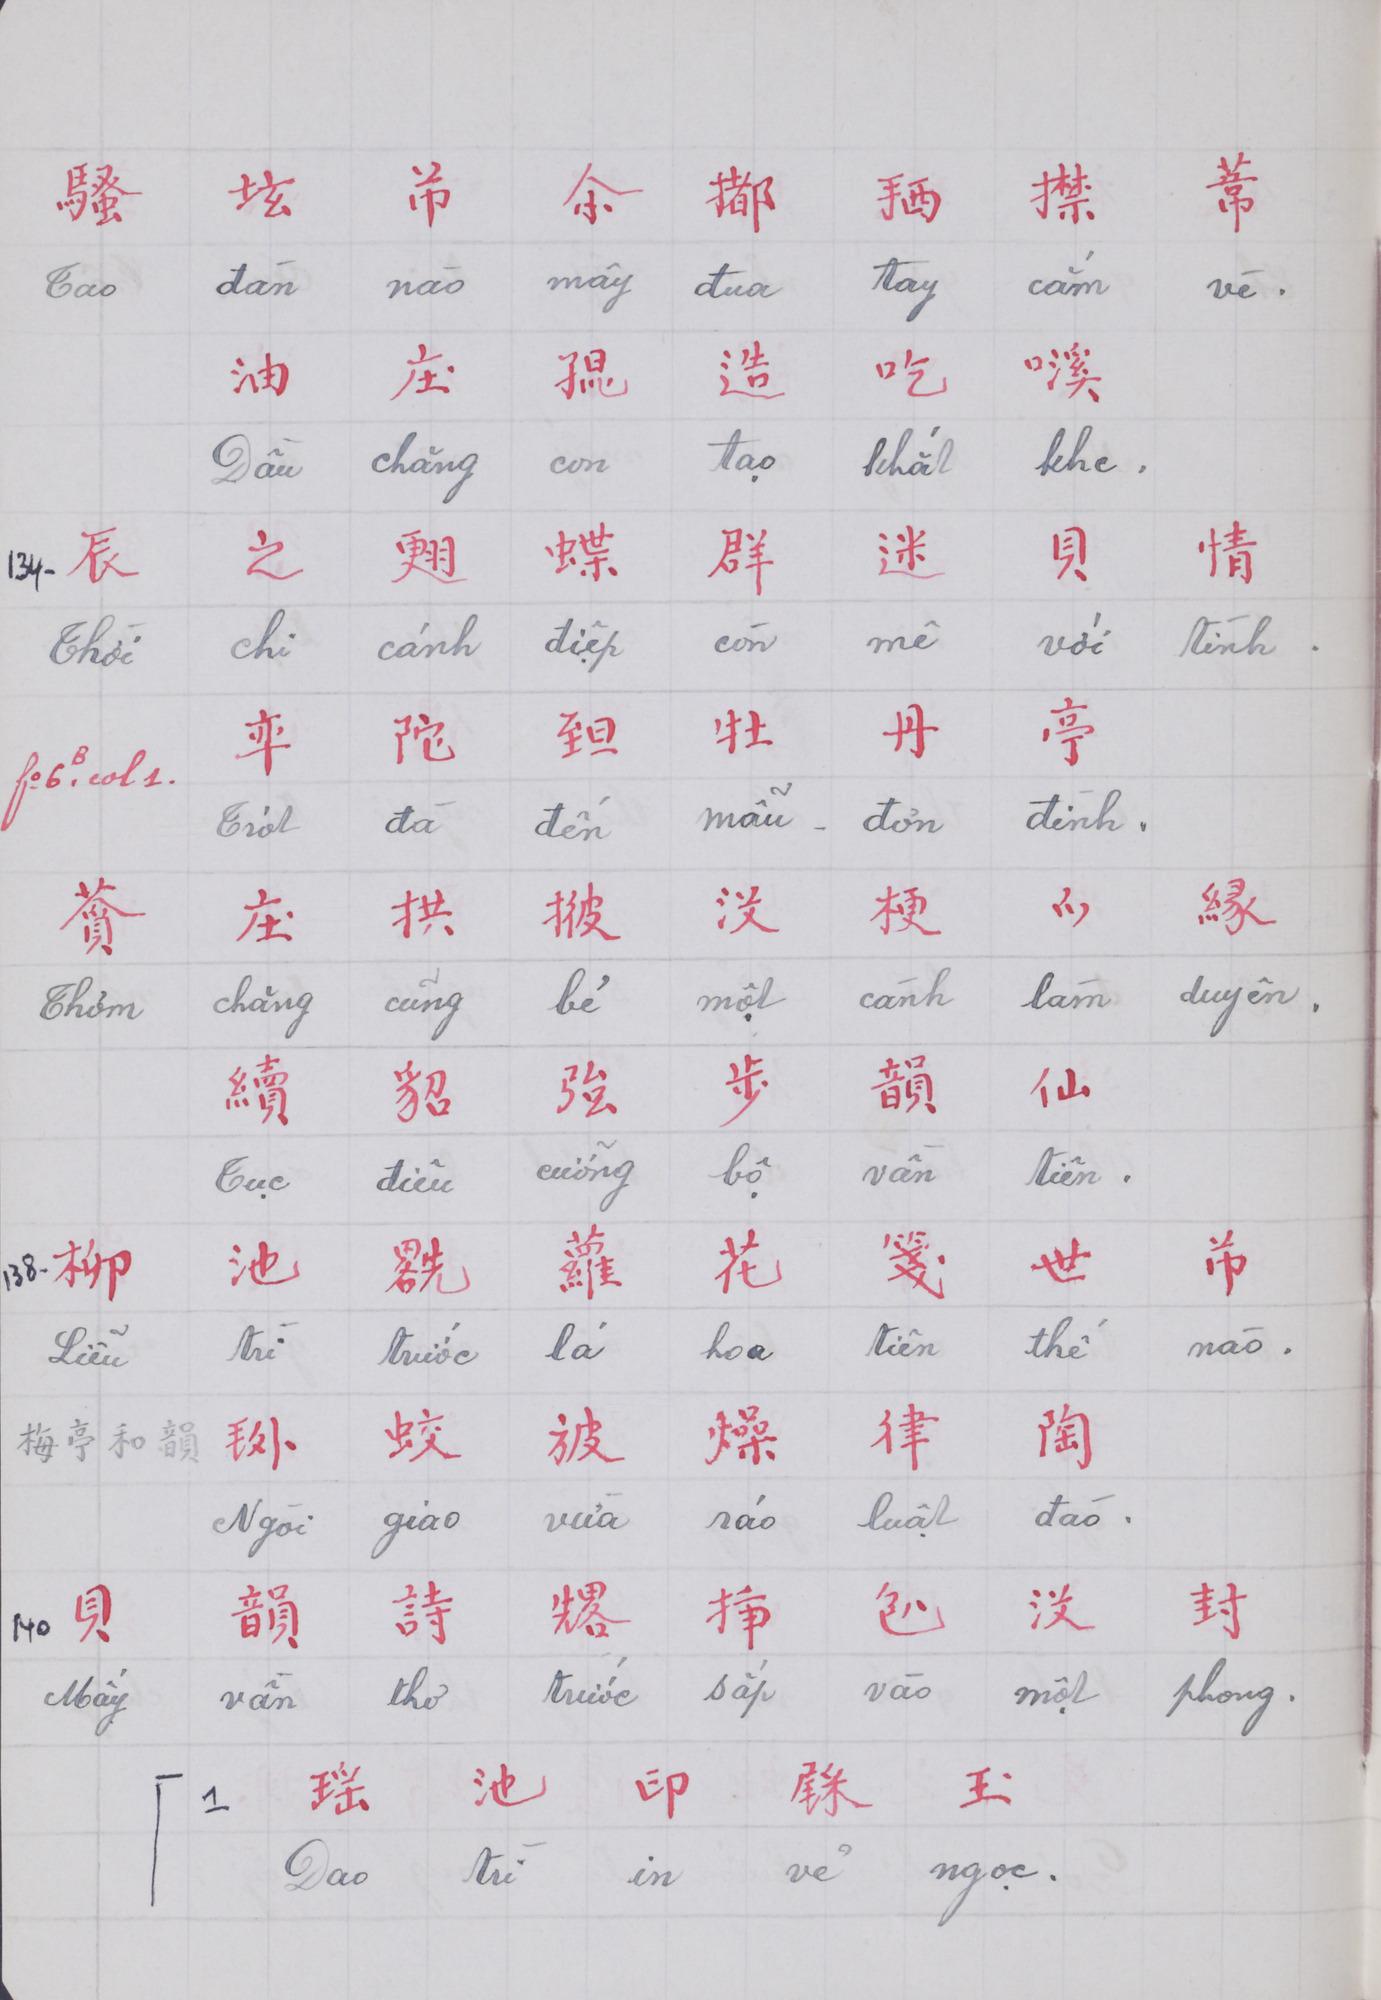 騷 坛 芇 余 㨋 𢬣 攃 蒂
Tao đàn nào mấy đua tay cắm về.
油 庄 𡥵 造 吃 嘆
Dầu chăng con tạo khắt khe.
134- 辰 之 翅 蝶 群 迷 貝 情
Thời chi cánh điệp còn mê với tình.
𠅎 陀 𦤾 牡 丹 亭
fo 6B. col 1.
Trót đà đến mẫu - đơn đình.
庄 拱 𢱎 没 梗 𫜵 縁
Thơm chăng cũng bẻ một cành làm duyên.
續 貂 強 步 韻 仙
Tục điêu cưỡng bộ vần tiên.
138- 柳 池 蘿 花 箋 世 芇
Liễu trì trước lá hoa tiên thế nào.
梅亭和韻 蛟 燥 律 陶
Ngòi giao vừa ráo luật đào.
140 貝 韻 詩 𠓀 插 𠓨 没 封
Mấy vần thơ trước sắp vào một phong.
1 瑶 池 印 𨤔 玉
Dao trì in vẻ ngọc.